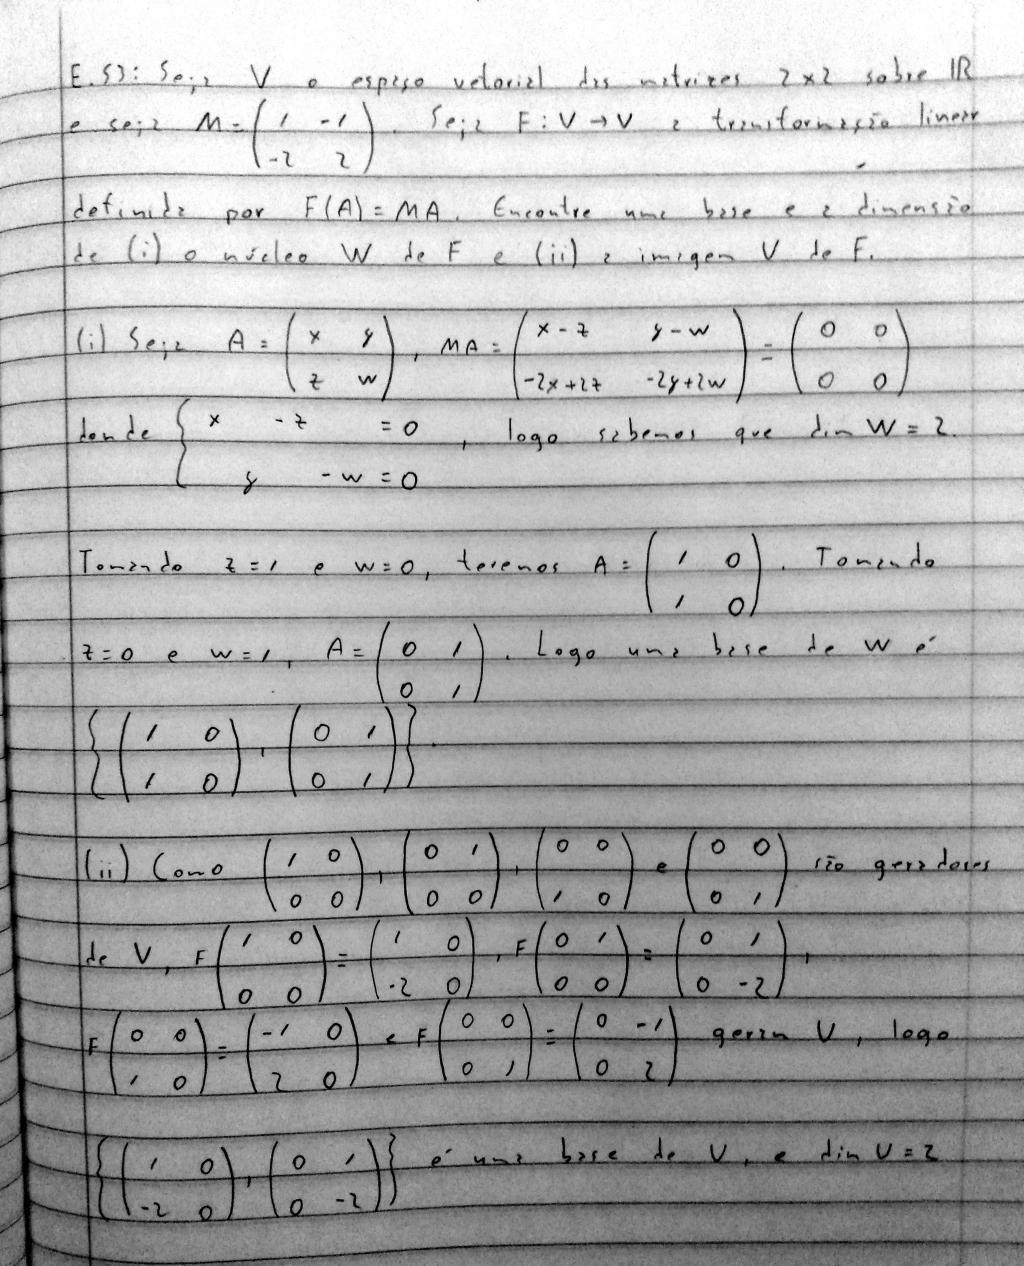 E.53: Seja V o espaço vetorial das matrizes 2x2 sobre IR
e seja M = (1 -1 / -2 2). Seja F: V → V a transformação linear
definida por F(A) = MA. Encontre uma base e a dimensão
de (i) o núcleo W de F e (ii) a imagem U de F.
(i) Seja A = (x y / z w), MA = (x - z y - w / -2x + 2z -2y + 2w) = (0 0 / 0 0)
donde { x - z = 0 , logo sabemos que dim W = 2.
y - w = 0
Tomando z = 1 e w = 0, teremos A = (1 0 / 1 0). Tomando
z = 0 e w = 1, A = (0 1 / 0 1). Logo uma base de W é
{(1 0 / 1 0), (0 1 / 0 1)}.
(ii) Como (1 0 / 0 0), (0 1 / 0 0), (0 0 / 1 0) e (0 0 / 0 1) são geradores
de V, F(1 0 / 0 0) = (1 0 / -2 0), F(0 1 / 0 0) = (0 1 / 0 -2),
F(0 0 / 1 0) = (-1 0 / 2 0) e F(0 0 / 0 1) = (0 -1 / 0 2) geram U, logo
{(1 0 / -2 0), (0 1 / 0 -2)} é uma base de U, e dim U = 2